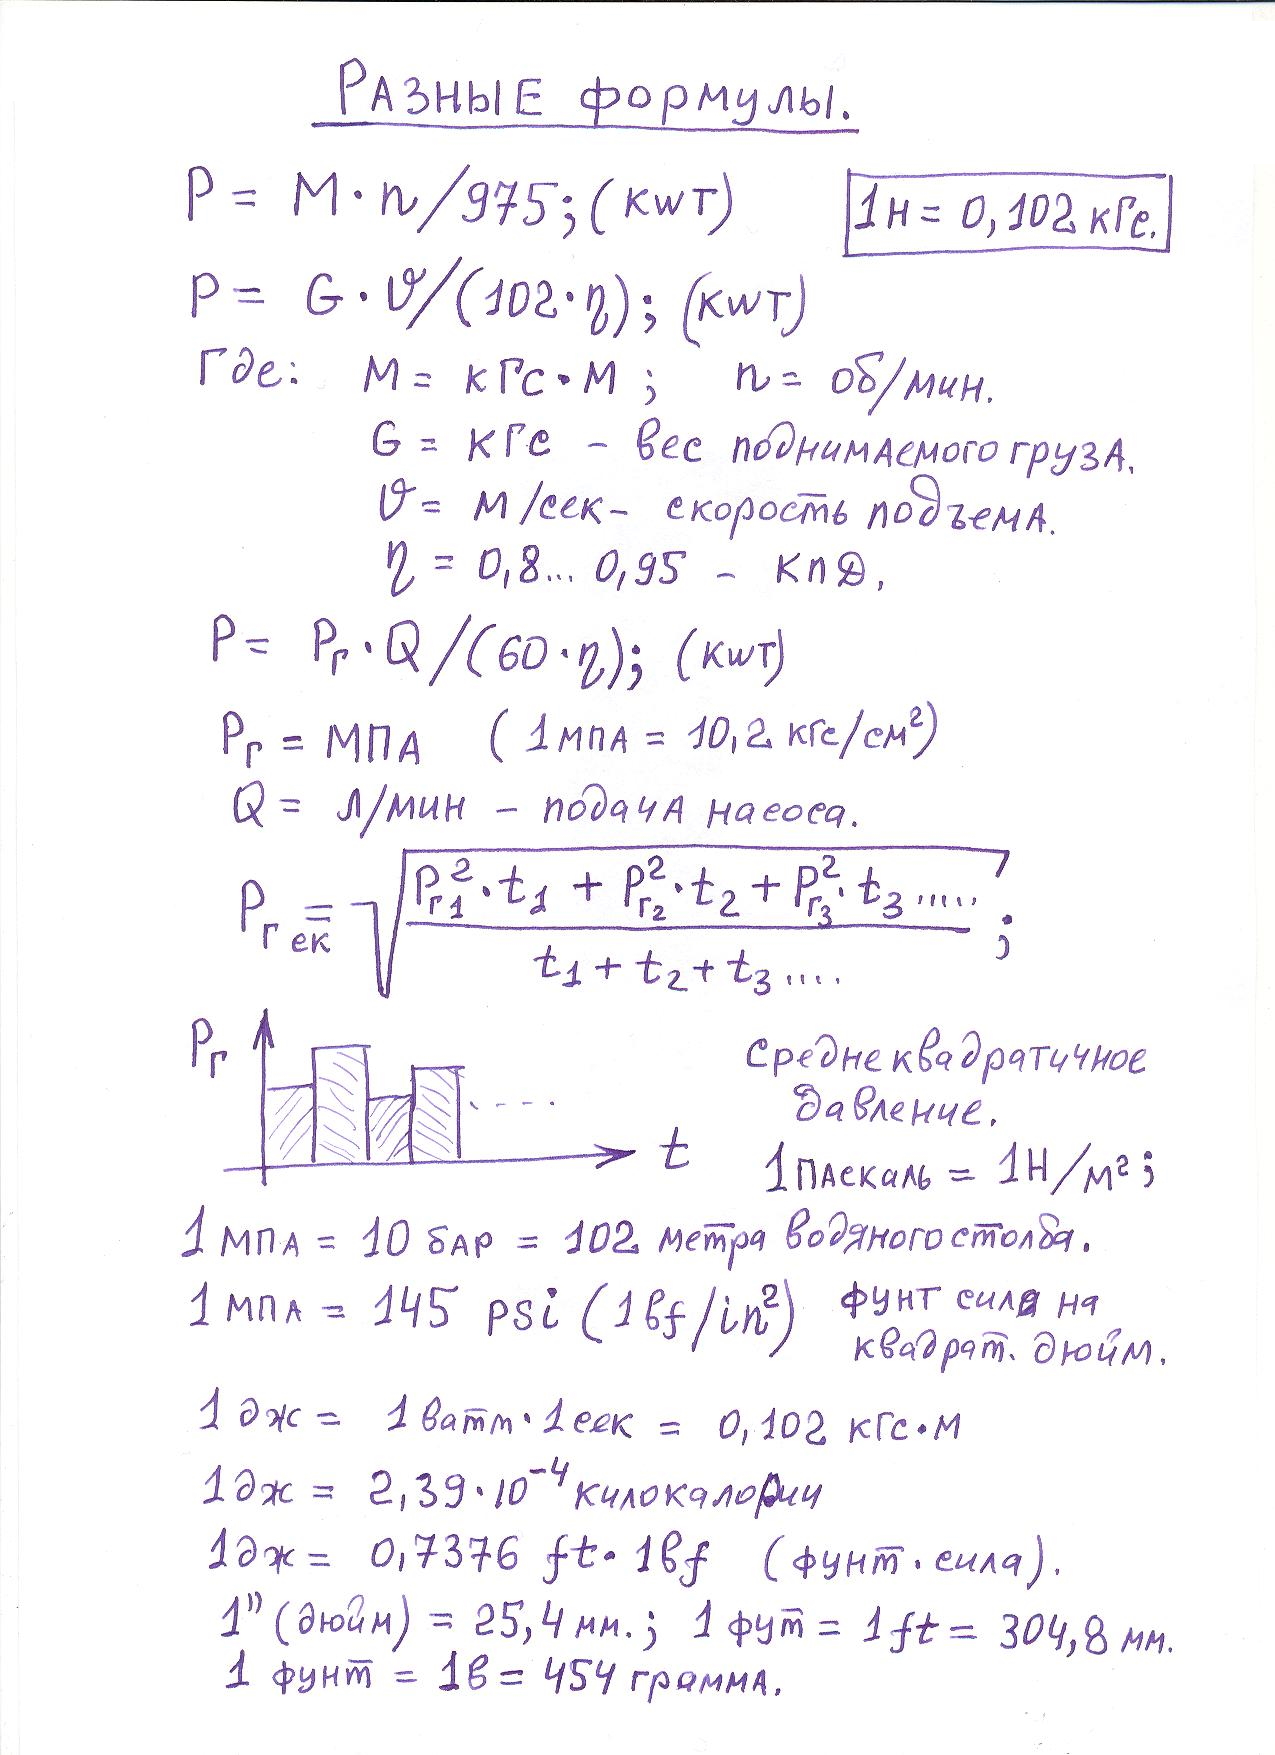 Разные формулы.
P = M·n/975; (кwт)
1н = 0,102 кГс.
P = G·υ/(102·η); (кwт)
Где: М = кГс·м; n = об/мин.
G = кГс - вес поднимаемого груза.
υ = м/сек - скорость подъема.
η = 0,8... 0,95 - КПД.
P = Pг·Q/(60·η); (кwт)
Pг = МПА (1мпа = 10,2 кгс/см²)
Q = л/мин - подача насоса.
Pг ск = √((Pг1²·t1 + Pг2²·t2 + Pг3²·t3.....)/(t1 + t2 + t3....));
Pг
t
Среднеквадратичное
давление.
1Паскаль = 1Н/м²;
1 мпа = 10 бар = 102 метра водяного столба.
1 мпа = 145 psi (1bf/in²) фунт сила на
квадрат. дюйм.
1 дж = 1 ватт·1 сек = 0,102 кгс·м
1 дж = 2,39·10⁻⁴ килокалории
1 дж = 0,7376 ft·1bf (фунт·сила).
1" (дюйм) = 25,4 мм.; 1 фут = 1ft = 304,8 мм.
1 фунт = 1в = 454 грамма.